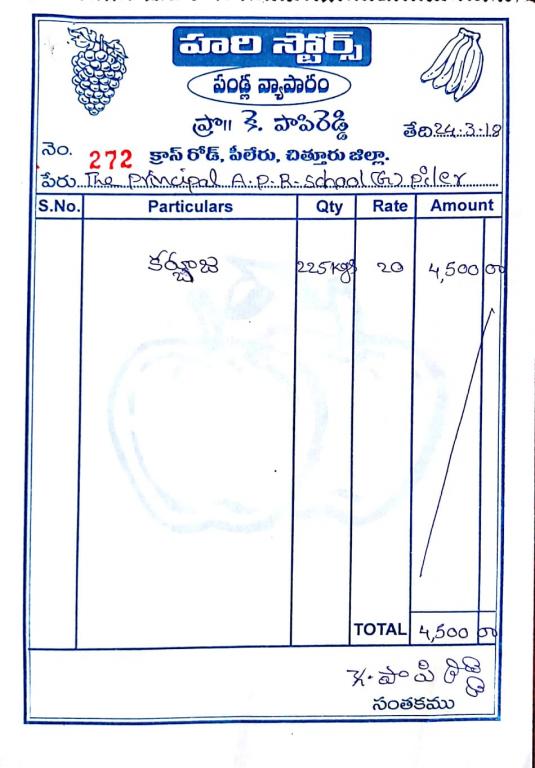 హరి స్టోర్స్
పండ్ల వ్యాపారం
ప్రొ॥ కె. పాపిరెడ్డి
తేది 24.3.18
నెం. 272 క్రాస్ రోడ్, పీలేరు, చిత్తూరు జిల్లా.
పేరు The principal A.P.R. school (G) piler
S.No. Particulars Qty Rate Amount
కర్బూజ 225 kgs 20 4,500 00
TOTAL 4,500 00
K. పాపిరెడ్డి
సంతకము